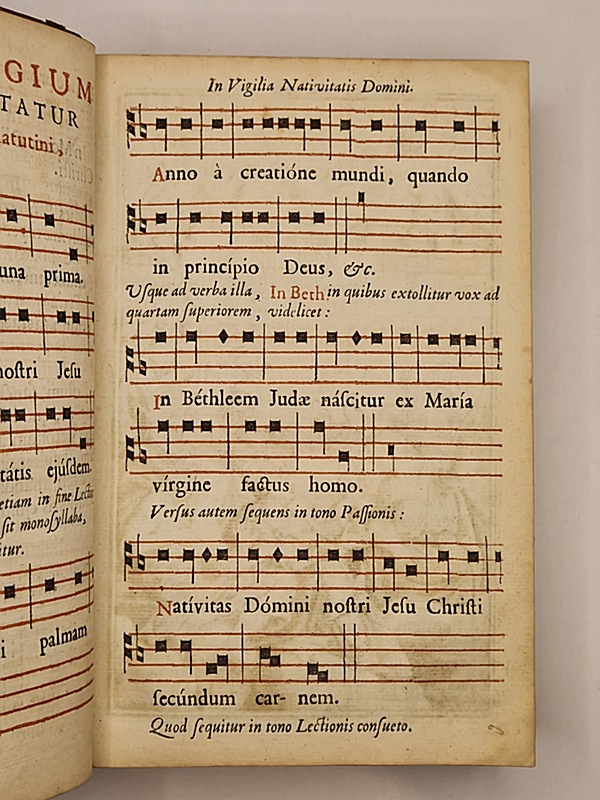 GIUM
TATUR
atutini,
una prima.
noſtri Jeſu
tátis ejúſdem.
etiam in fine Lectio
ſit monoſyllaba,
itur.
i palmam
In Vigilia Nativitatis Domini.
Anno à creatióne mundi, quando
in princípio Deus, &c.
Uſque ad verba illa, In Beth in quibus extollitur vox ad
quartam ſuperiorem, videlicet:
In Béthleem Judæ náſcitur ex María
vírgine factus homo.
Verſus autem ſequens in tono Paſſionis:
Natívitas Dómini noſtri Jeſu Chriſti
ſecúndum car- nem.
Quod ſequitur in tono Lectionis conſueto.